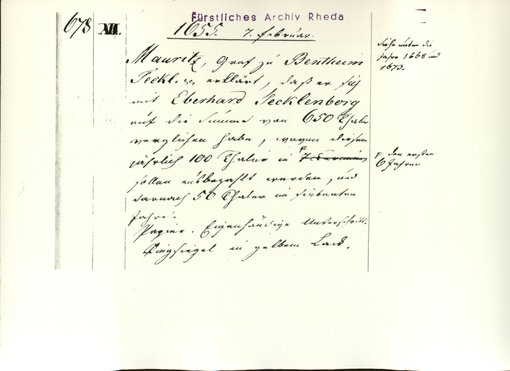 Fürstliches Archiv Rheda
678 XII. 1655. 7. Februar.
Mauritz, Graf zu Bentheim
Teckl. erklärt, daß er sich
mit Eberhard Tecklenborg
auf die Summe von 650 Thaler
verglichen habe, wovon diesem
jährlich 100 Thaler in 7 Terminen
sollen ausbezahlt werden, und
darnach 50 Thaler im siebenten
Jahre.
Papier. Eigenhändige Unterschrift.
Ringsiegel in gelbem Lack.
Siehe unter die
Jahre 1668 und
1673.
den ersten
6 Jahren